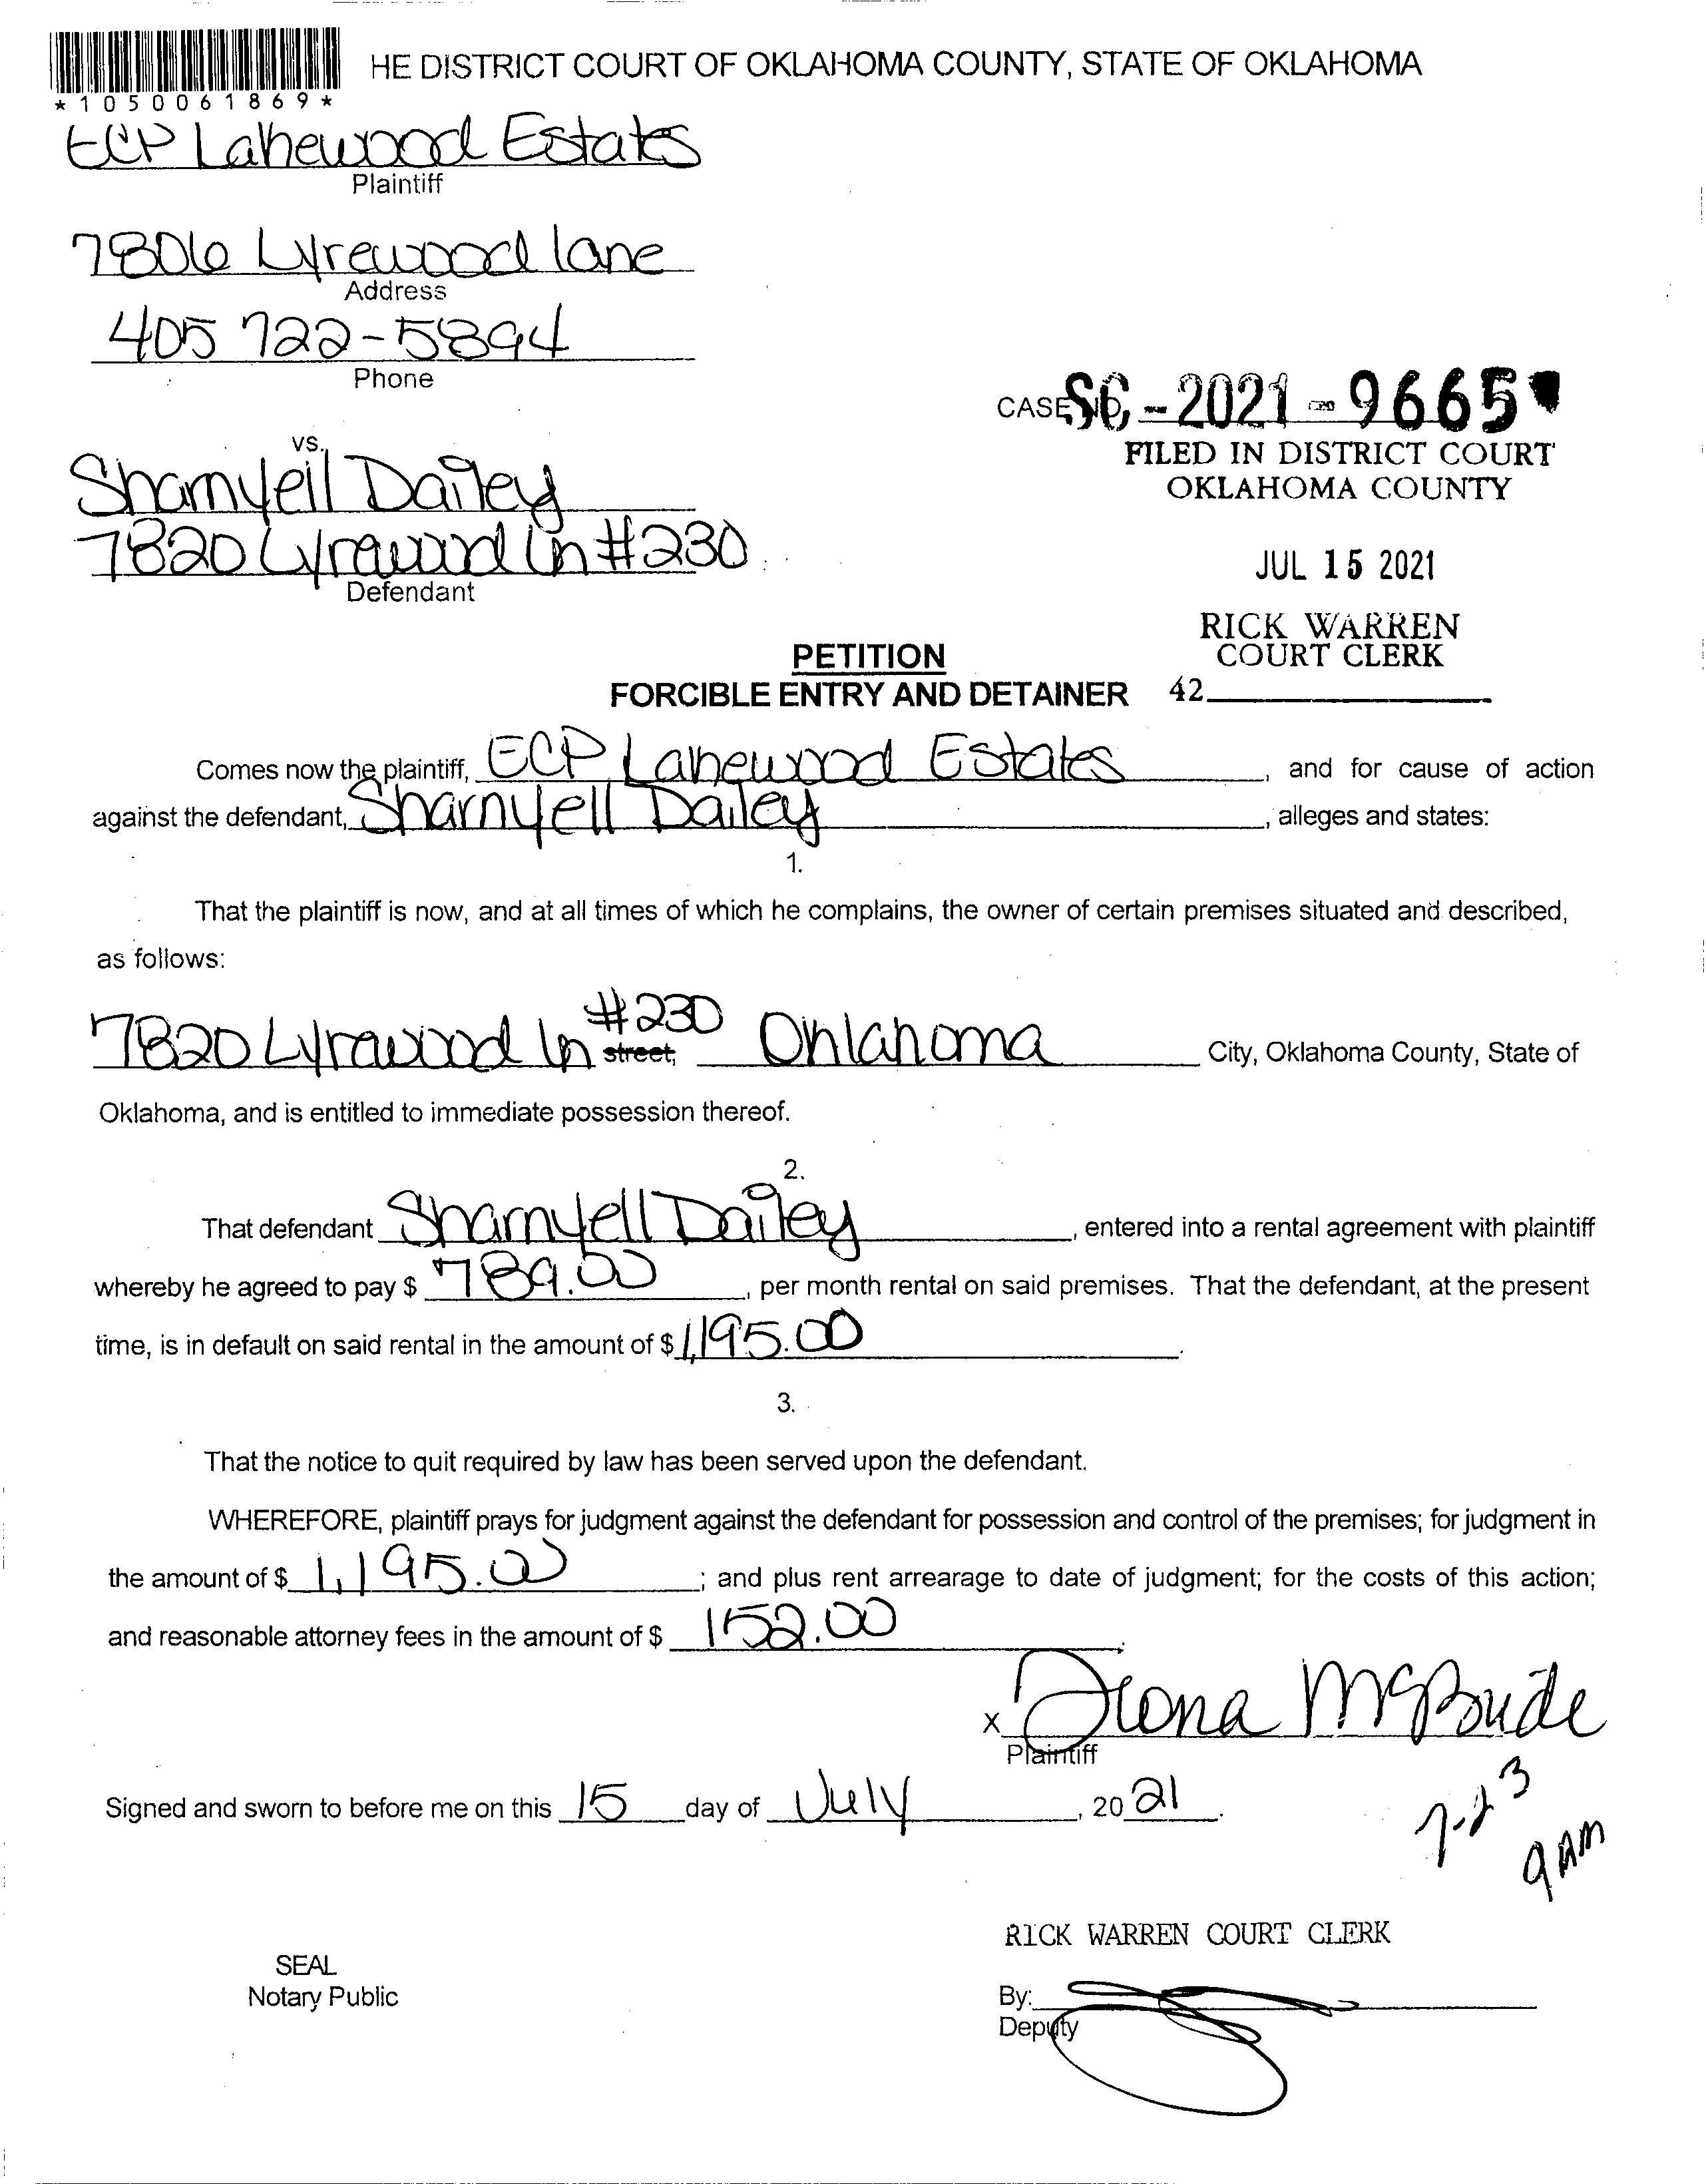 HE DISTRICT COURT OF OKLAHOMA COUNTY, STATE OF OKLAHOMA
*1050061869*
ECP Lakewood Estates
Plaintiff
7806 Lyrewood lane
Address
405 722-5894
Phone
CASE NO. SC-2021-9665
FILED IN DISTRICT COURT
OKLAHOMA COUNTY
JUL 15 2021
RICK WARREN
COURT CLERK
42
vs.
Sharnyell Dailey
7820 Lyrawood Ln #230
Defendant
PETITION
FORCIBLE ENTRY AND DETAINER
Comes now the plaintiff, ECP Lakewood Estates, and for cause of action
against the defendant, Sharnyell Dailey, alleges and states:
1.
That the plaintiff is now, and at all times of which he complains, the owner of certain premises situated and described,
as follows:
7820 Lyrawood Ln #230 street, Oklahoma City, Oklahoma County, State of
Oklahoma, and is entitled to immediate possession thereof.
2.
That defendant Sharnyell Dailey, entered into a rental agreement with plaintiff
whereby he agreed to pay $ 789.00, per month rental on said premises. That the defendant, at the present
time, is in default on said rental in the amount of $ 1,195.00.
3.
That the notice to quit required by law has been served upon the defendant.
WHEREFORE, plaintiff prays for judgment against the defendant for possession and control of the premises; for judgment in
the amount of $ 1,195.00; and plus rent arrearage to date of judgment; for the costs of this action;
and reasonable attorney fees in the amount of $ 152.00.
x Diona McBride
Plaintiff
Signed and sworn to before me on this 15 day of July, 20 21.
7-23
9 AM
RICK WARREN COURT CLERK
SEAL
Notary Public
By:
Deputy